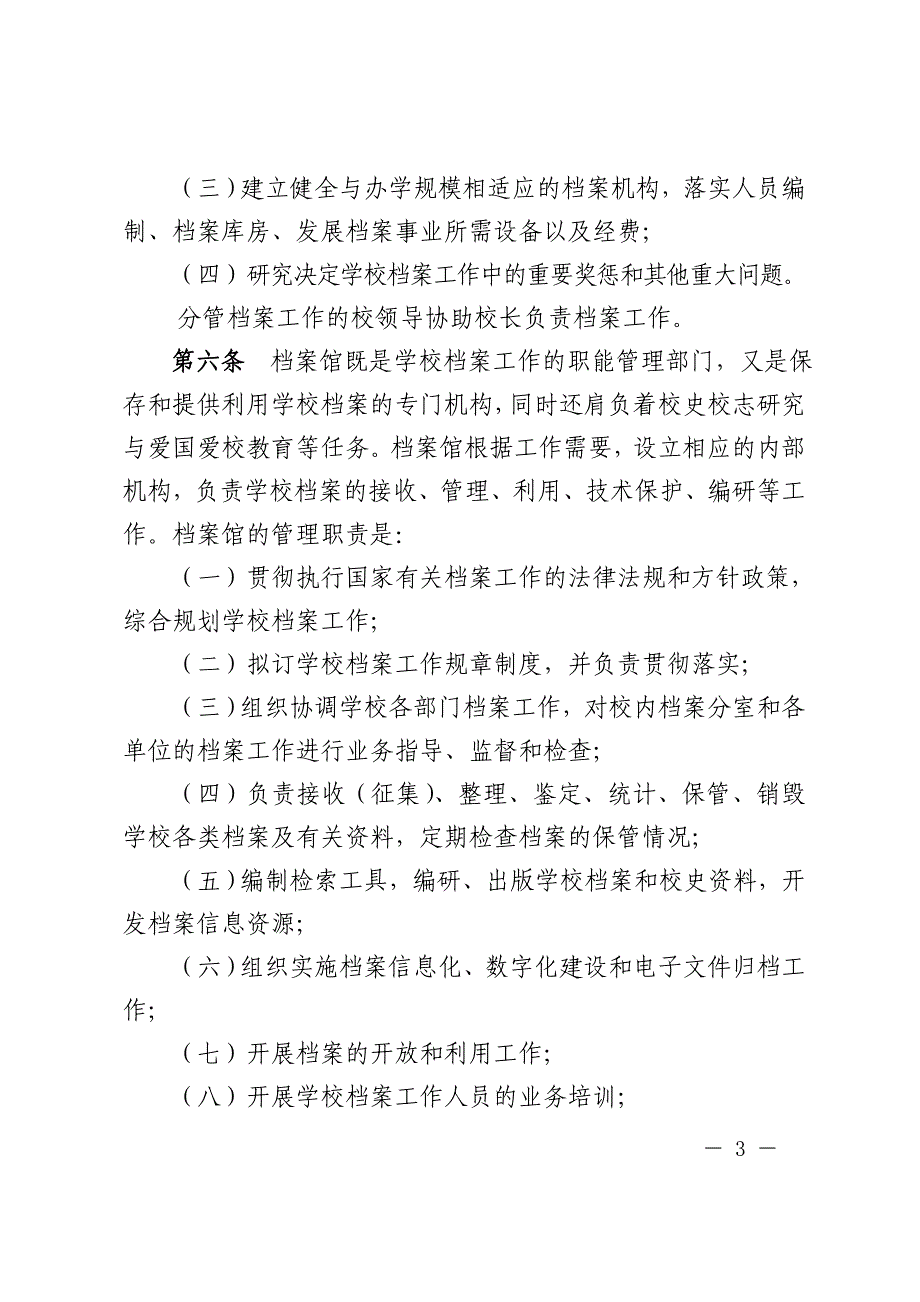 （三）建立健全与办学规模相适应的档案机构，落实人员编
制、档案库房、发展档案事业所需设备以及经费；
（四）研究决定学校档案工作中的重要奖惩和其他重大问题。
分管档案工作的校领导协助校长负责档案工作。
第六条　档案馆既是学校档案工作的职能管理部门，又是保
存和提供利用学校档案的专门机构，同时还肩负着校史校志研究
与爱国爱校教育等任务。档案馆根据工作需要，设立相应的内部
机构，负责学校档案的接收、管理、利用、技术保护、编研等工
作。档案馆的管理职责是：
（一）贯彻执行国家有关档案工作的法律法规和方针政策，
综合规划学校档案工作；
（二）拟订学校档案工作规章制度，并负责贯彻落实；
（三）组织协调学校各部门档案工作，对校内档案分室和各
单位的档案工作进行业务指导、监督和检查；
（四）负责接收（征集）、整理、鉴定、统计、保管、销毁
学校各类档案及有关资料，定期检查档案的保管情况；
（五）编制检索工具，编研、出版学校档案和校史资料，开
发档案信息资源；
（六）组织实施档案信息化、数字化建设和电子文件归档工
作；
（七）开展档案的开放和利用工作；
（八）开展学校档案工作人员的业务培训；
— 3 —